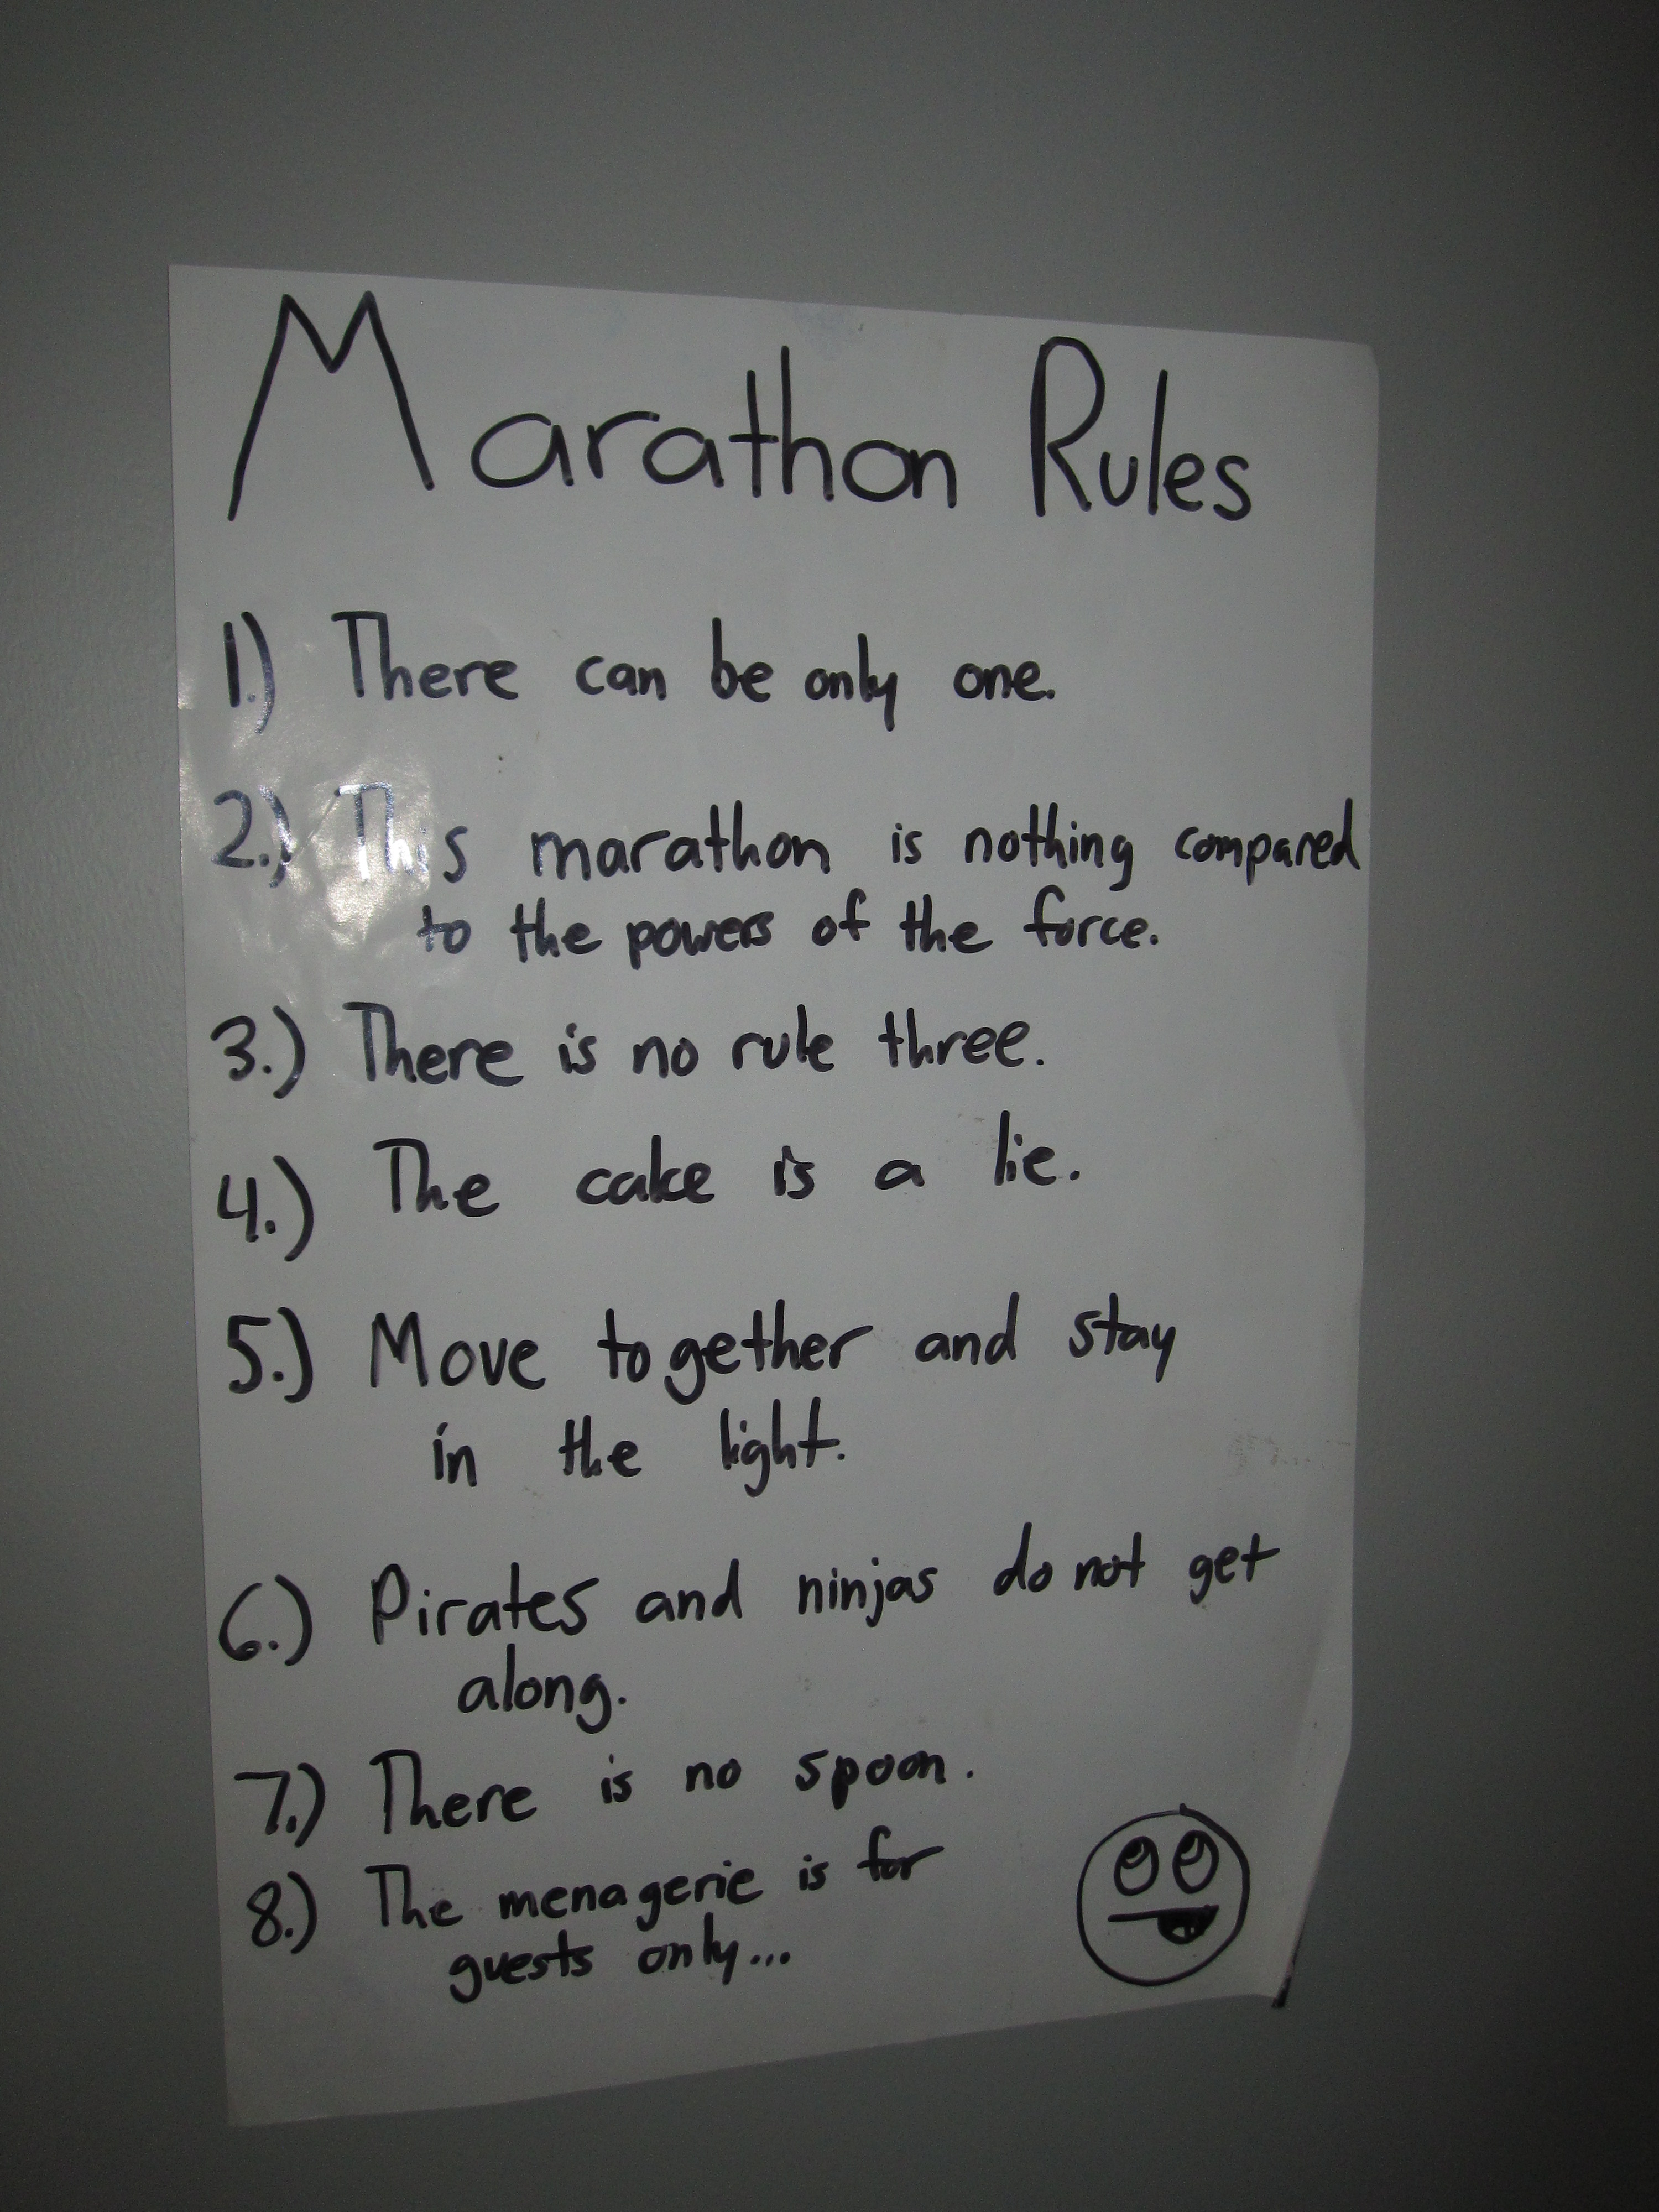 Marathon Rules
1.) There can be only one.
2.) This marathon is nothing compared
to the powers of the force.
3.) There is no rule three.
4.) The cake is a lie.
5.) Move together and stay
in the light.
6.) Pirates and ninjas do not get
along.
7.) There is no spoon.
8.) The menagerie is for
guests only...